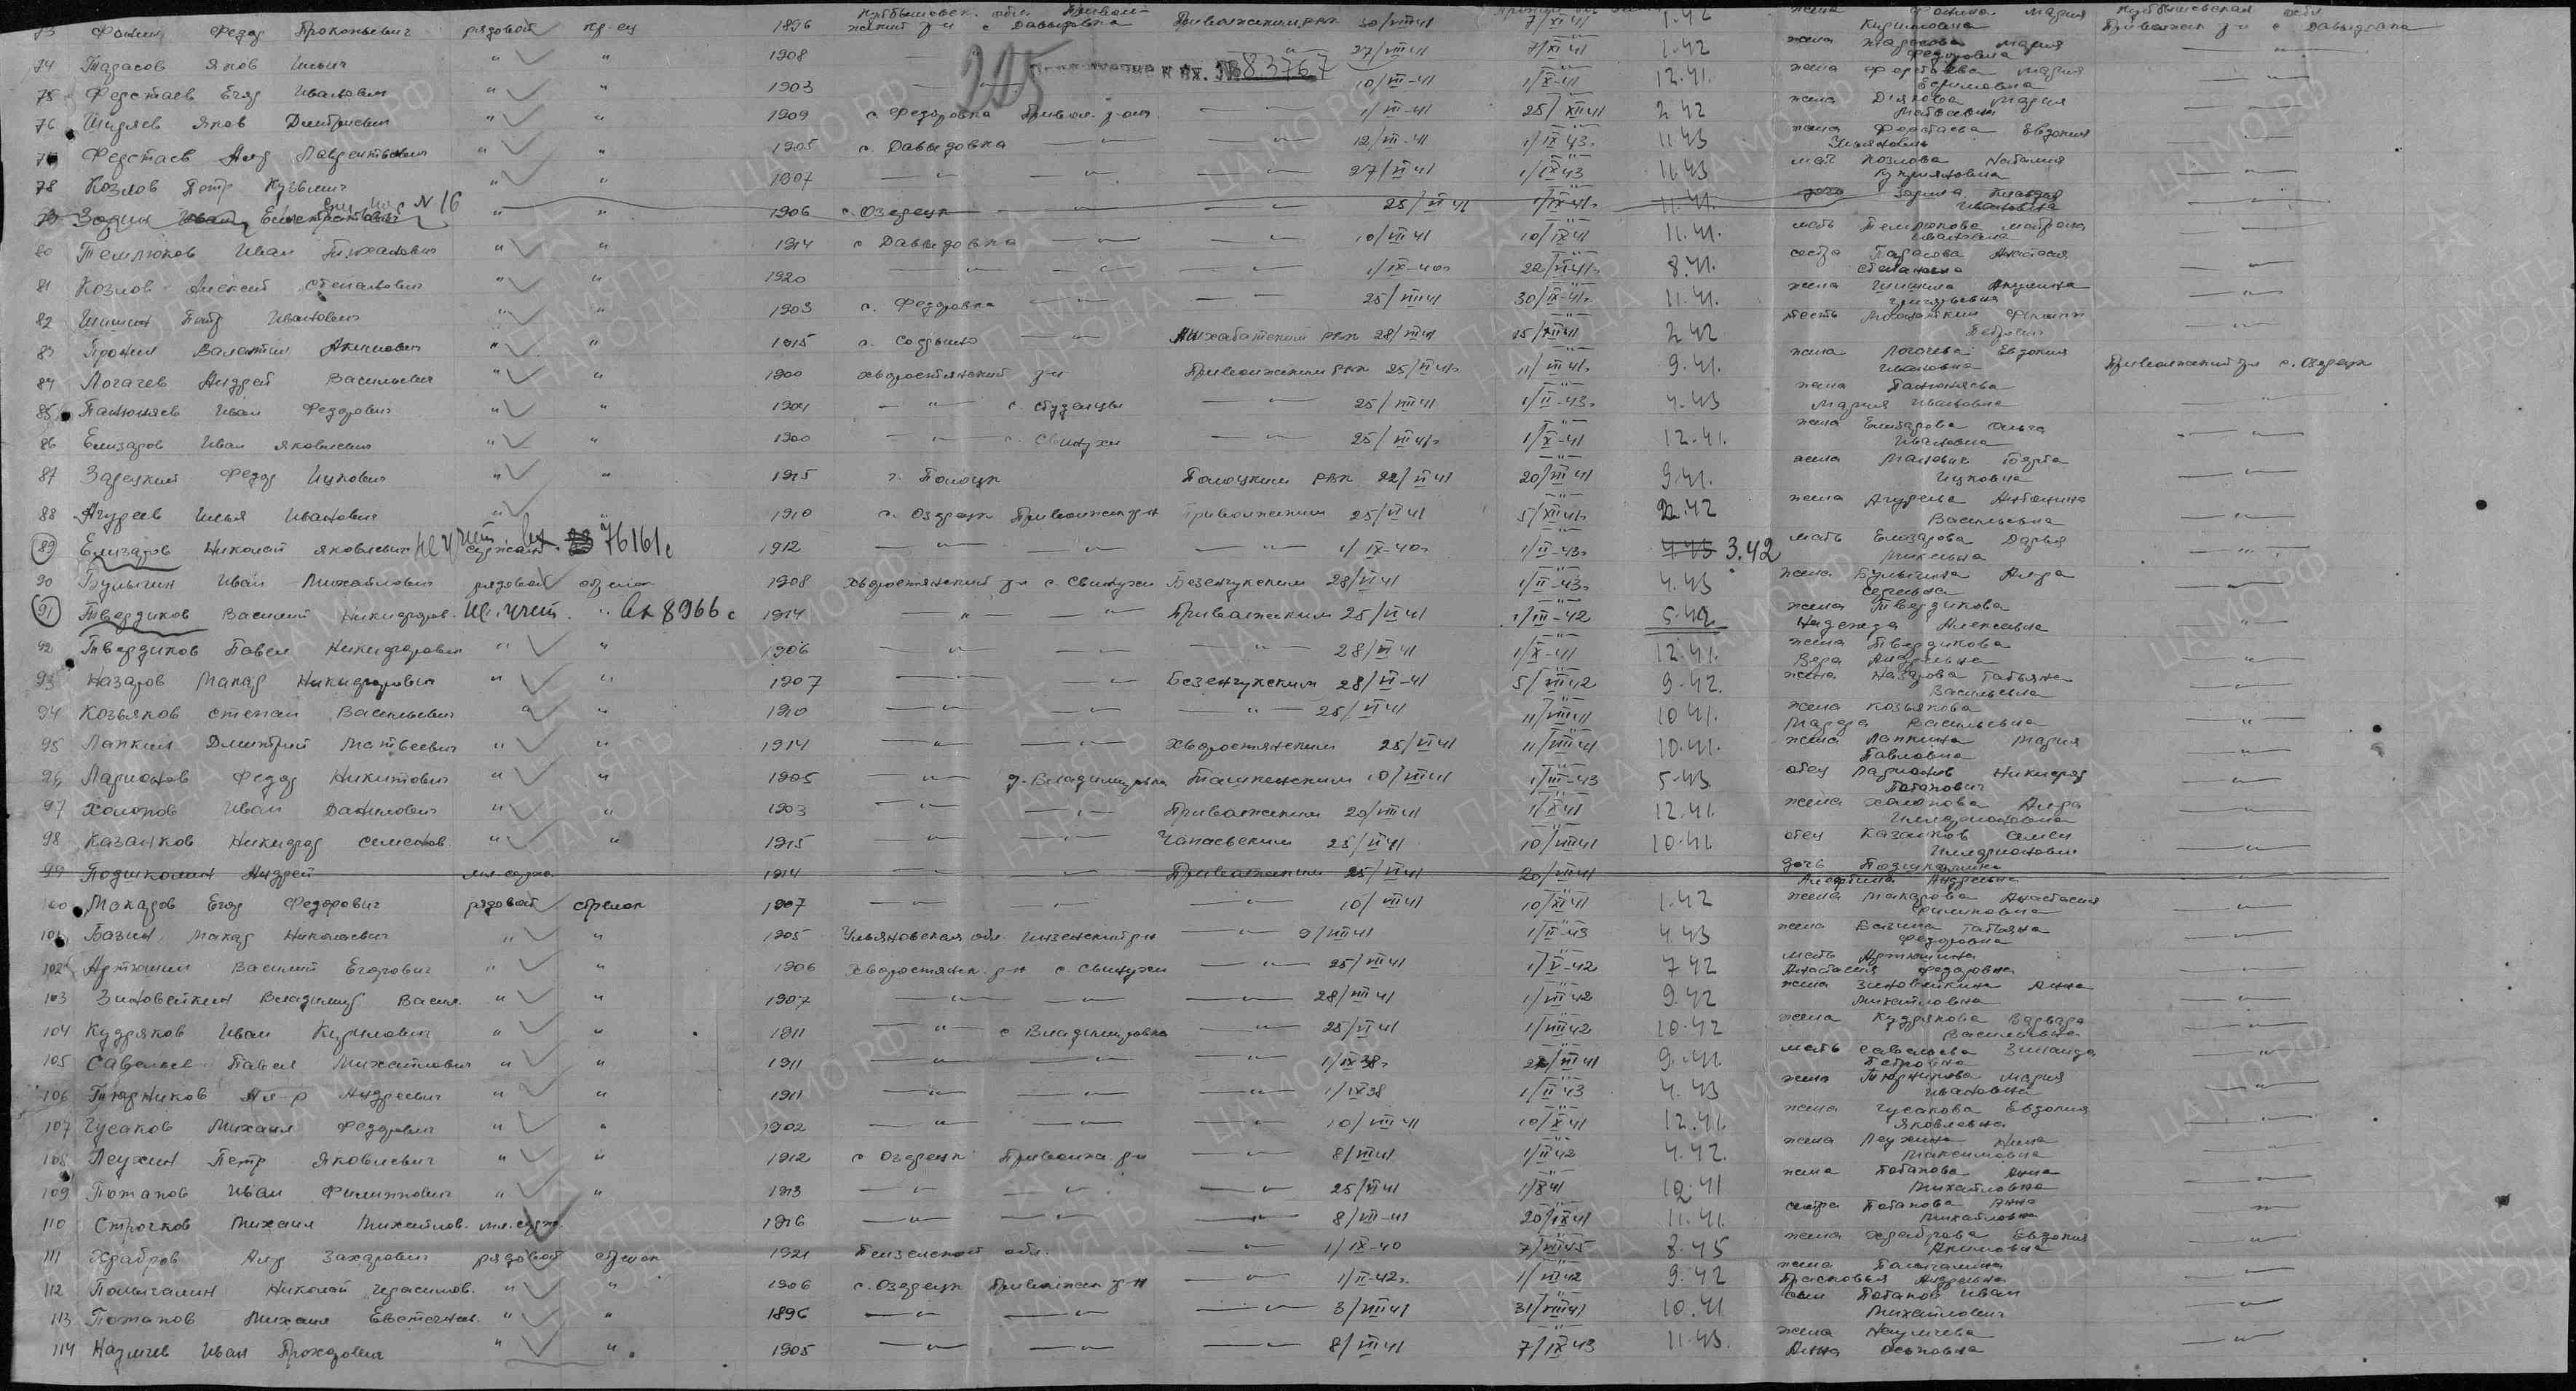 73 Фомин Федор Прокопьевич рядовой кр-ец 1896 Куйбышевск. обл Приволжский р-н с Давыдовка Приволжским рвк 30/VIII 41 7/XI 41 1.42 жена Фомина Мария Кириловна Куйбышевская обл Приволжск р-н с Давыдовка
74 Тарасов Яков Ильич " " 1908 27/VIII 41 7/XI 41 1.42 жена Тарасова Мария Федоровна — " —
225 к вх. № 83767
75 Ферстаев Егор Иванович " " 1903 10/VII-41 1/X-41 12.41. жена Мария Ефимовна — " —
76 Ширяев Яков Дмитриевич " " 1909 с. Федоровка Привол. р-на — " — 1/VII-41 25/XII 41 2.42 жена Мария — " —
77 Ферстаев Алд Лаврентьевич " " 1905 с. Давыдовка — " — — " — 12/VII-41 1/IX 43г 11.43 жена Ферстаева Евдокия — " —
78 Козлов Петр Кузьмич " " 1907 — " — — " — — " — 27/VI 41 1/IX 43 11.43 мать Козлова Наталия Куприяновна — " —
79 Зорин Иван Елистратович № 16 " " 1906 с. Озерецк 25/VI 41 1/IX 41г 11.41. Зорина Клавдия Ивановна — " —
80 Темлюков Иван Тихонович " " 1914 с Давыдовка — " — — " — 10/VII 41 10/IX 41 11.41. мать Темлюкова Матрена Ивановна — " —
81 Козлов Алексей Степанович " " 1920 — " — — " — — " — 1/IX-40г 22/VI-41г 8.41. сестра Тарасова Анастасия Степановна — " —
82 Шишкин Петр Иванович " " 1903 с. Федоровка — " — — " — 25/VIII 41 30/IX-41г 11.41. жена Шишкина Акулина Григорьевна — " —
83 Пронин Валентин Акимович " " 1915 — " — Ашхабатским рвк 28/VII 41 15/XII 41 2.42 тесть Филипп Петрович — " —
84 Логачев Андрей Васильевич " " 1900 Хворостянский р-н Приволжским рвк 25/VI 41г 11/VII 41г 9.41. жена Логачева Евдокия Ивановна Приволжский р-н с. Озерецк
85 Панюняев Иван Федорович " " 1904 — " — с. Студенцы — " — 25/VIII 41 1/II-43г 4.43 жена Панюняева Мария Ивановна — " —
86 Елизаров Иван Яковлевич " " 1900 — " — с. Свинухи — " — 25/VII 41г 1/X-41 12.41. жена Елизарова Ольга Ивановна — " —
87 Зарецкий Федор Ицкович " " 1915 г. Полоцк Полоцким рвк 22/VI 41 20/VII 41 9.41. жена Берта Ицковна — " —
88 Агуреев Илья Иванович " " 1910 с. Озерецк Приволжск р-н Приволжским 25/VI 41 5/XII 41г 2.42 жена Агуреева Антонина Васильевна — " —
89 Елизаров Николай Яковлевич сержант вх 76161с 1912 — " — — " — — " — 1/IX-40г 1/II-43г 4.43 3.42 мать Елизарова Дарья — " —
90 Булыгин Иван Михайлович рядовой стрелок 1908 Хворостянский р-н с. Свинухи Безенчукским 28/VI 41 1/II-43г 4.43 жена Булыгина Сергеевна — " —
91 Твердиков Василий Никифоров. вх 8966с 1914 " — " — Приволжским 25/VI 41 1/III-42 5.42 жена Твердикова Надежда Алексеевна — " —
92 Твердиков Павел Никифорович " " 1906 — " — — " — — " — 28/VI 41 1/X-41 12.41. жена Твердикова Вера Андреевна — " —
93 Назаров Макар Никифорович " " 1907 — " — — " — Безенчукским 28/VI-41 5/VII 42 9.42. жена Назарова Татьяна Васильевна — " —
94 Козьяков Степан Васильевич " " 1910 — " — — " — — " — 25/VI 41 11/VIII 41 10.41. жена Козьякова Васильевна — " —
95 Лапкин Дмитрий Матвеевич " " 1914 — " — — " — Хворостянским 25/VI 41 11/VIII 41 10.41. жена Лапкина Мария Павловна — " —
96 Ларионов Федор Никитович " " 1905 — " — д. Владимировка Ташкентским 10/VII 41 1/III-43 5.43 отец Ларионов Потапович — " —
97 Холопов Иван Данилович " " 1903 — " — — " — Приволжским 20/VIII 41 1/X 41 12.41. жена Холопова Илларионовна — " —
98 Казанков Никифор Семенов. " " 1915 — " — — " — Чапаевским 25/VI 41 10/VIII 41 10.41 отец Казанков Семен Илларионович — " —
99 Андрей мл. сержа 1914 — " — Приволжским 25/VI 41 20/VIII 41 дочь Андреевна — " —
100 Макаров Егор Федорович рядовой стрелок 1907 — " — — " — — " — 10/VIII 41 10/XI 41 1.42 жена Макарова Анастасия Филиповна — " —
101 Базин Макар Николаевич " " 1905 Ульяновская обл. Инзенский р-н — " — 9/VIII 41 1/II-43 4.43 жена Базина Татьяна Федоровна — " —
102 Артюшин Василий Егорович " " 1906 Хворостянск. р-н с. Свинухи — " — 25/VII 41 1/V-42 7.42 мать Артюшина Анастасия Федоровна — " —
103 Зиновейкин Владимир Васил. " " 1907 — " — — " — — " — 28/VIII 41 1/VII 42 9.42 жена Зиновейкина Анна Михайловна — " —
104 Кудряков Иван Кирилович " " 1911 — " — с Владимировка — " — 25/VI 41 1/VIII 42 10.42 жена Кудрякова Варвара Васильевна — " —
105 Савельев Павел Михайлович " " 1911 — " — — " — — " — 1/IX 38г 22/VII 41 9.41 мать Савельева Зинаида Петровна — " —
106 Тюрников Ал-р Андреевич " " 1911 — " — — " — — " — 1/IX 38 1/II 43 4.43 жена Тюрникова Мария Ивановна — " —
107 Гусаков Михаил Федорович " " 1902 — " — — " — — " — 10/VIII 41 10/X 41 12.41. жена Гусакова Евдокия Яковлевна — " —
108 Леухин Петр Яковлевич " " 1912 с Озерецк Приволж. р-н — " — 8/VII 41 1/II 42 4.42. жена Леухина Нина Максимовна — " —
109 Потапов Иван Филиппович " " 1913 — " — — " — — " — 25/VI 41 1/X 41 12.41 жена Потапова Анна Михайловна — " —
110 Строчков Михаил Михайлов. мл. серж. 1916 — " — — " — — " — 8/VII-41 20/IX 41 11.41. сестра Потапова Анна Михайловна — " —
111 Храбров Алд Захарович рядовой стрелок 1921 Пензенской обл. — " — 1/IX-40 7/VII 45 8.45 жена Храброва Евдокия Акимовна — " —
112 Полыгалин Николай Герасимов. " " 1906 с. Озерецк Приволжск р-н — " — 1/II-42г 1/VII 42 9.42 жена Полыгалина Прасковья Андреевна — " —
113 Потапов Михаил Евстегнеев. " " 1896 — " — — " — — " — 3/VIII 41 31/VIII 41 10.41 сын Потапов Иван Михайлович — " —
114 Наумчев Иван Прохорович " " 1905 — " — — " — — " — 8/VII 41 7/IX 43 11.43. жена Наумчева Анна Осиповна — " —
ЦА МО РФ
ПАМЯТЬ НАРОДА